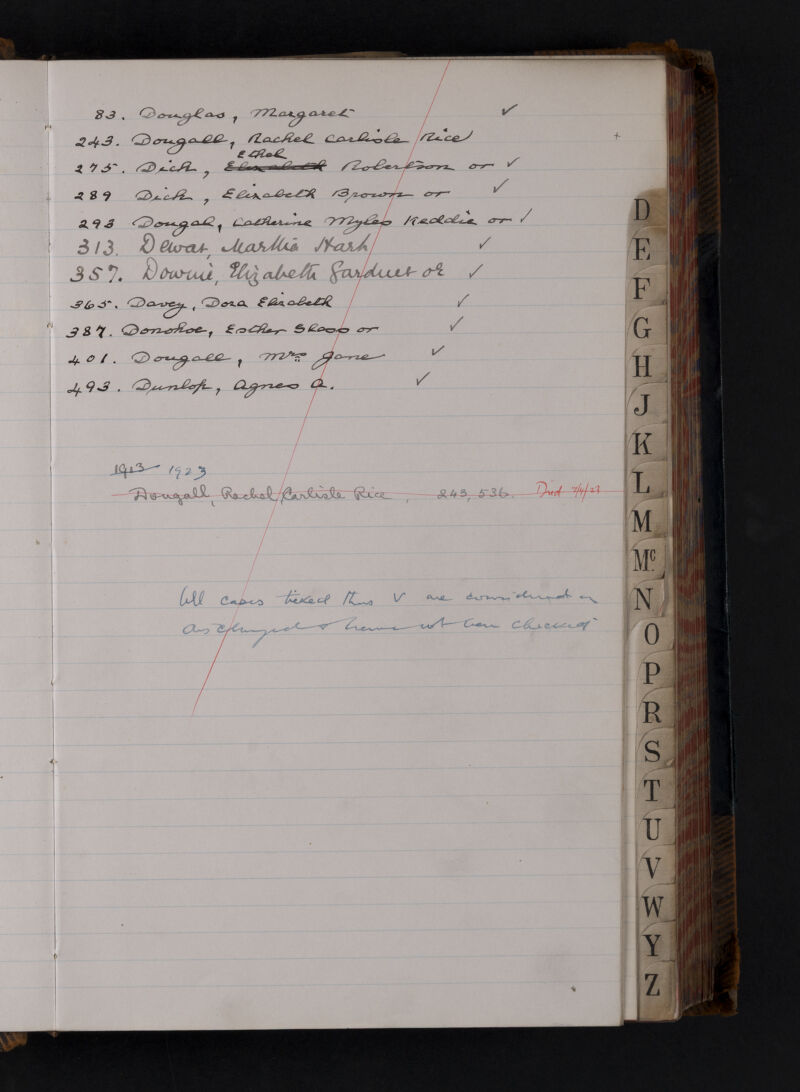 83. Douglas, Margaret ✓
243. Dougall, Rachel Carlisle Rice
Ethel
275. Dick, Elizabeth Robertson or ✓
289 Dick, Elizabeth Brown or ✓
293 Dougal, Catherine Myles Keddie or ✓
313. Dewar, Martha Hart ✓
357. Downie, Elizabeth Gardner or ✓
365. Davey, Dora Elizabeth ✓
387. Donohoe, Esther Glass or ✓
401. Dougall, Mrs Jane ✓
493. Dunlop, Agnes A. ✓
1913 1923
Dougall, Rachel Carlisle Rice, 243, 536. Died 7/4/27
All cases ticked thus V are considered as
discharged & have not been checked
D
E
F
G
H
J
K
L
M
Mc.
N
O
P
R
S
T
U
V
W
Y
Z